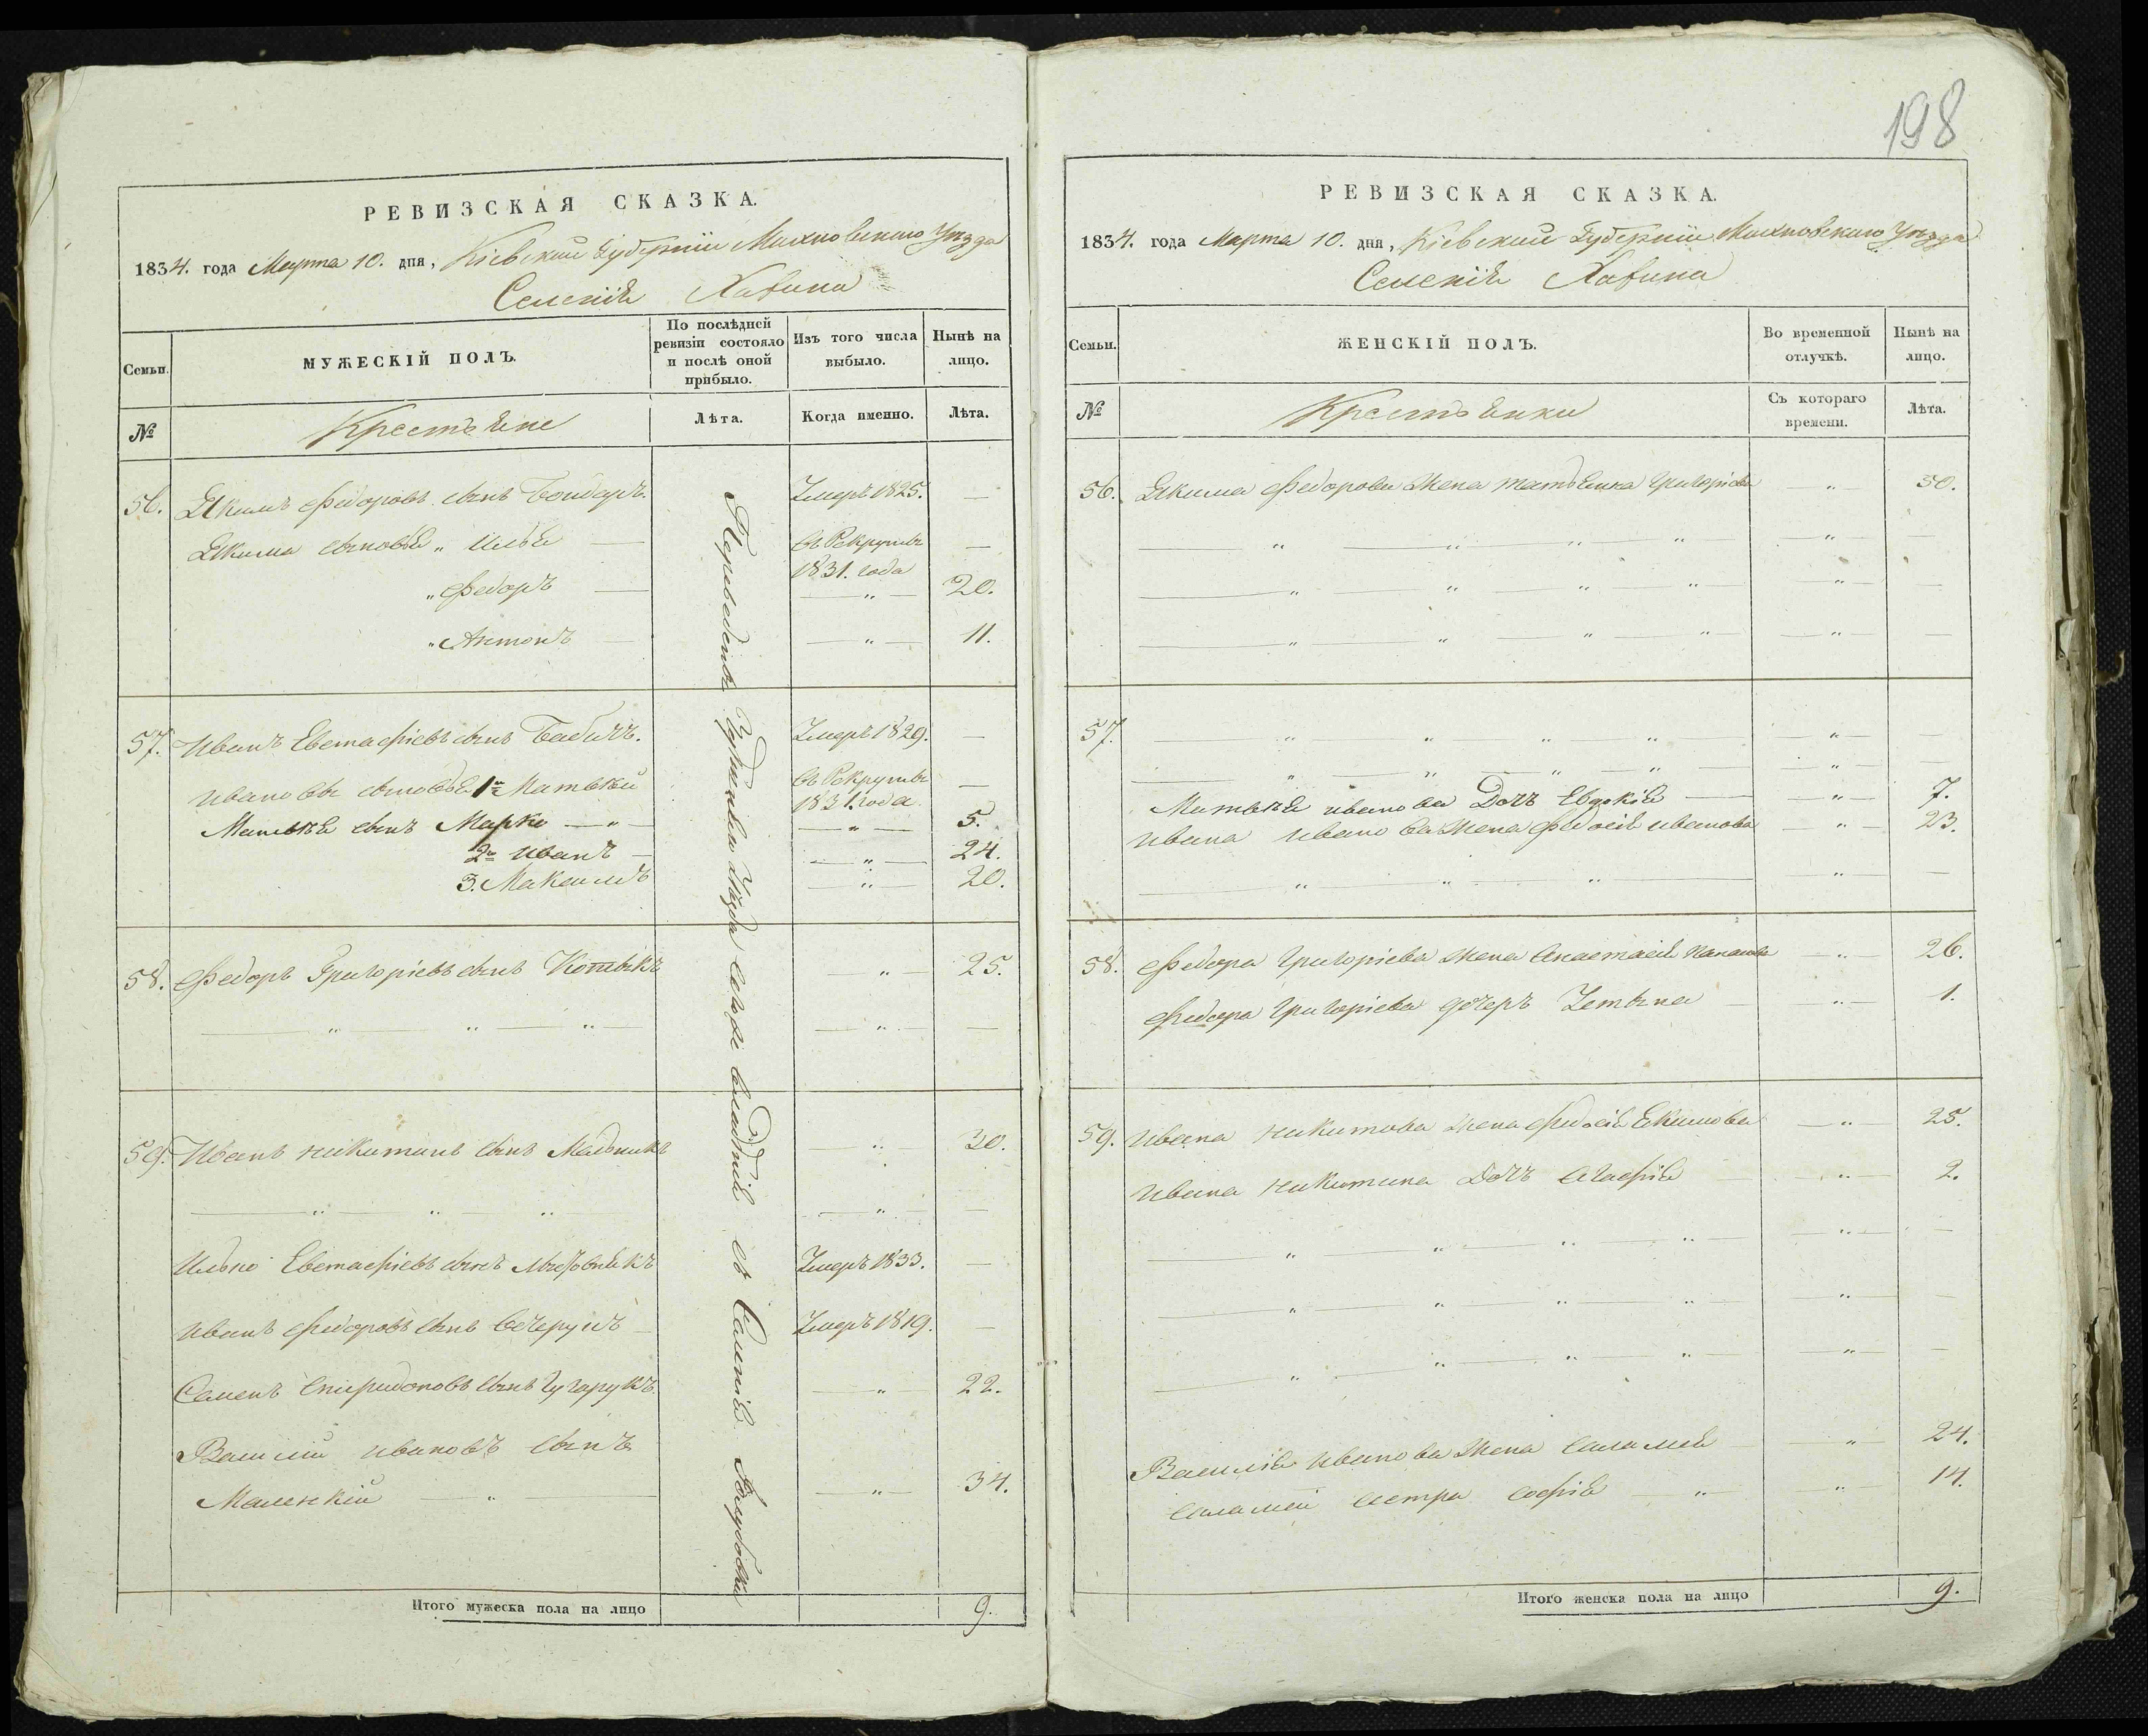 198
РЕВИЗСКАЯ СКАЗКА.
1834. года Марта 10. дня, Кіевской Губерніи Махновского Уезда
Селенія
МУЖЕСКІЙ ПОЛЪ.
По послѣдней
ревизіи состояло
и послѣ оной
прибыло.
Изъ того числа
выбыло.
Нынѣ на
лицо.
Семьи.
№
Крестьяне
Лѣта.
Когда именно.
Лѣта.
56. Якимъ Федоровъ сынъ Бондарь. Умеръ 1825. —
Якима сыновья „ Илья — въ Рекруты —
1831. года
„ Федоръ — — „ — 20.
„ Антонъ — — „ — 11.
57. Иванъ Евстафіевъ сынъ Бабичъ. Умеръ 1829. —
Ивановы сыновья 1й Матвѣй въ Рекруты —
1831. года
Матвѣя сынъ Марко — „ — — „ — 5.
2й Иванъ — — „ — 24.
3. Максимъ — „ — 20.
58. Федоръ Григоріевъ сынъ „ 25.
— „ — „ „ — „ — —
59. Иванъ Никитинъ сынъ Мельникъ — „ 30.
— „ — „ — „ — — „ — —
Илько Евстафіевъ сынъ Умеръ 1833. —
Иванъ Федоровъ сынъ Умеръ 1819. —
Семенъ Спиридоновъ сынъ — „ 22.
Василій Ивановъ сынъ
Маленкій — „ — — „ — 34.
Переведены уезда
Итого мужеска пола на лицо 9.
РЕВИЗСКАЯ СКАЗКА.
1834. года Марта 10. дня, Кіевской Губерніи Махновского Уезда
Селенія
Семьи.
ЖЕНСКІЙ ПОЛЪ.
Во временной
отлучкѣ.
Нынѣ на
лицо.
№
Крестьянки
Съ котораго
времени.
Лѣта.
56. Якима Федорова жена Григоріева „ 50.
— „ — „ „ — „ — — „ — —
— „ — „ — „ — „ — — „ — —
— „ — „ — „ — „ — — „ — —
57. — „ „ „ „ — — „ — —
— „ — „ — „ — „ — — „ — —
Матвѣя Иванова Дочь Евдокія — — „ — 7.
Ивана Иванова жена Федосія Иванова — „ — 23.
— „ „ „ — — „ — —
58. Федора Григоріева жена Анастасія — „ — 26.
Федора Григоріева дочеръ — — „ — 1.
59. Ивана Никитова жена Федосія Екимова — „ — 25.
Ивана Никитина Дочь Агафія — „ — 2.
— „ — „ — „ — „ — — „ — —
— „ — „ — „ — „ — — „ — —
— „ — „ — „ — „ — — „ — —
Василія Иванова жена Саламея — „ — 24.
Саламеи сестра Софія — „ — „ — 14.
Итого женска пола на лицо 9.